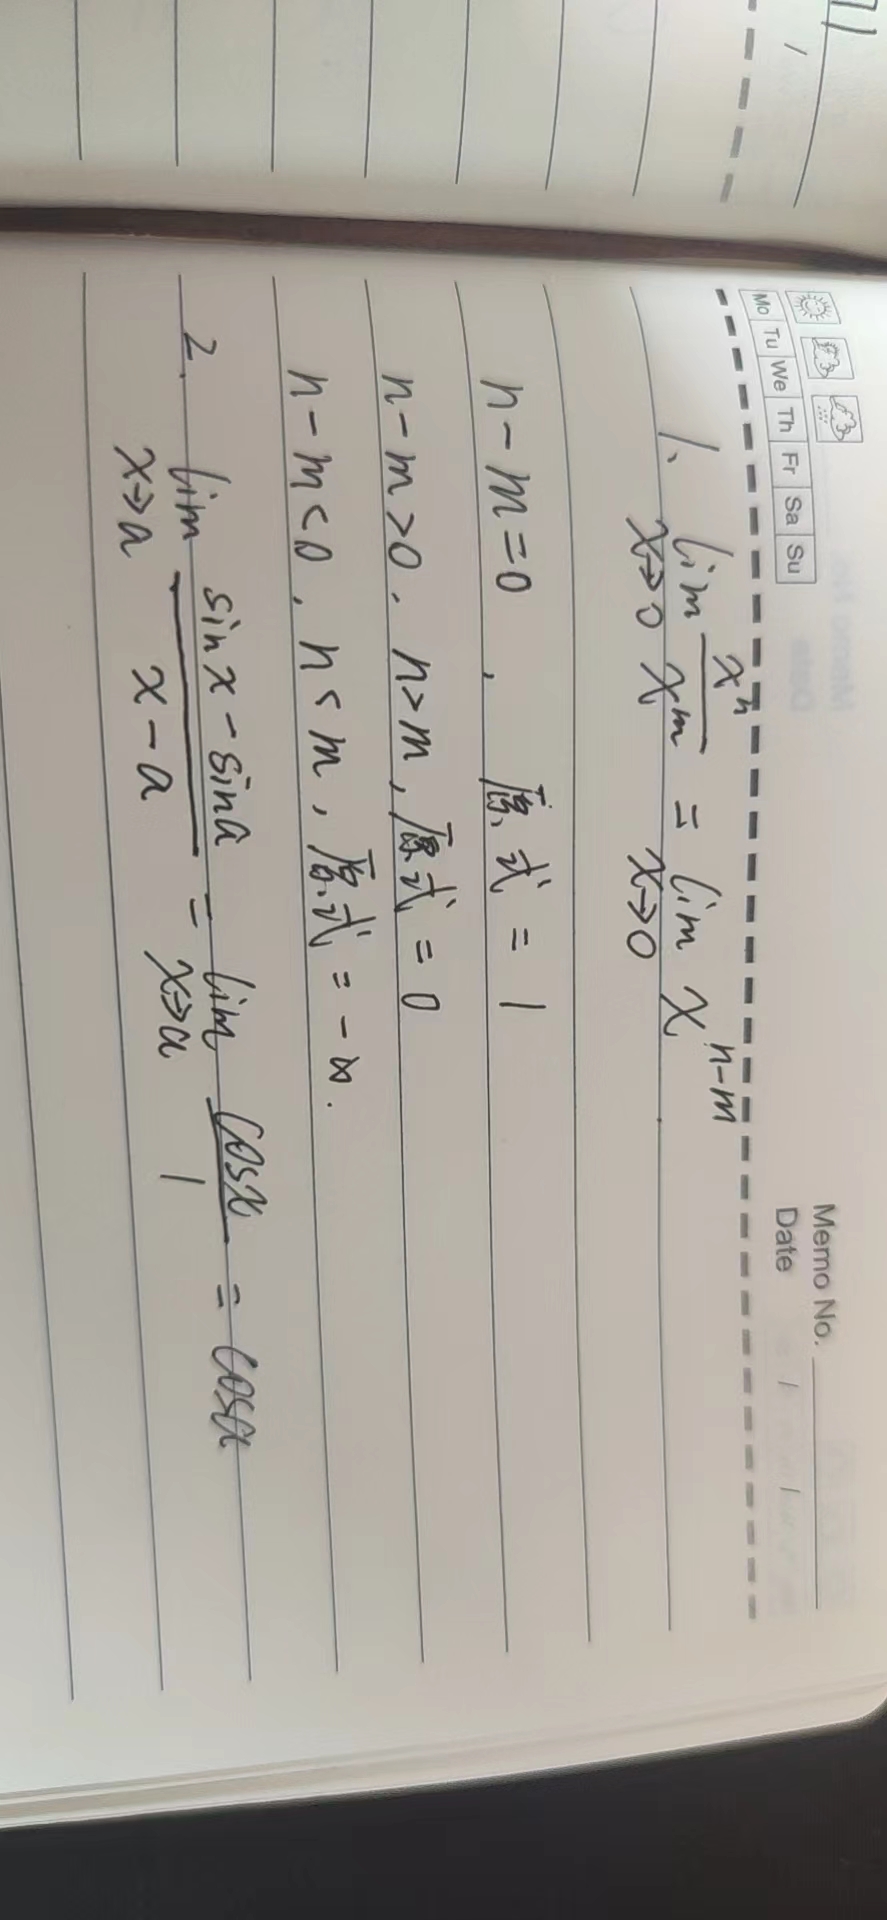 Memo No.
Mo Tu We Th Fr Sa Su
Date / /
1. lim_{x→0} x^n/x^m = lim_{x→0} x^{n-m}
n-m=0, 原式=1
n-m>0, n>m, 原式=0
n-m<0, n<m, 原式=-∞.
2. lim_{x→a} (sinx-sina)/(x-a) = lim_{x→a} cosx/1 = cosa